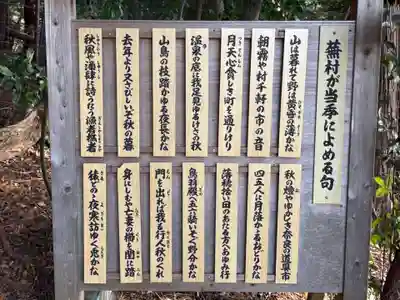 蕪村が当季によめる句
山は暮れて野は黄昏の薄かな
朝霧や村千軒の市の音
月天心貧しき町を通りけり
温泉の底に我足見ゆるけさの秋
山鳥の枝踏かゆる夜長かな
去年より又さびしいぞ秋の暮
秋風や酒肆に詩うたう漁者樵者
秋の燈やゆかしき奈良の道具市
四五人に月落かゝるおどりかな
落穂拾い日のあたる方へあゆみ行
鳥羽殿へ五六騎いそぐ野分かな
門を出れば我も行人秋のくれ
身にしむや亡妻の櫛を閨に踏
猿どのゝ夜寒訪ゆく兎かな